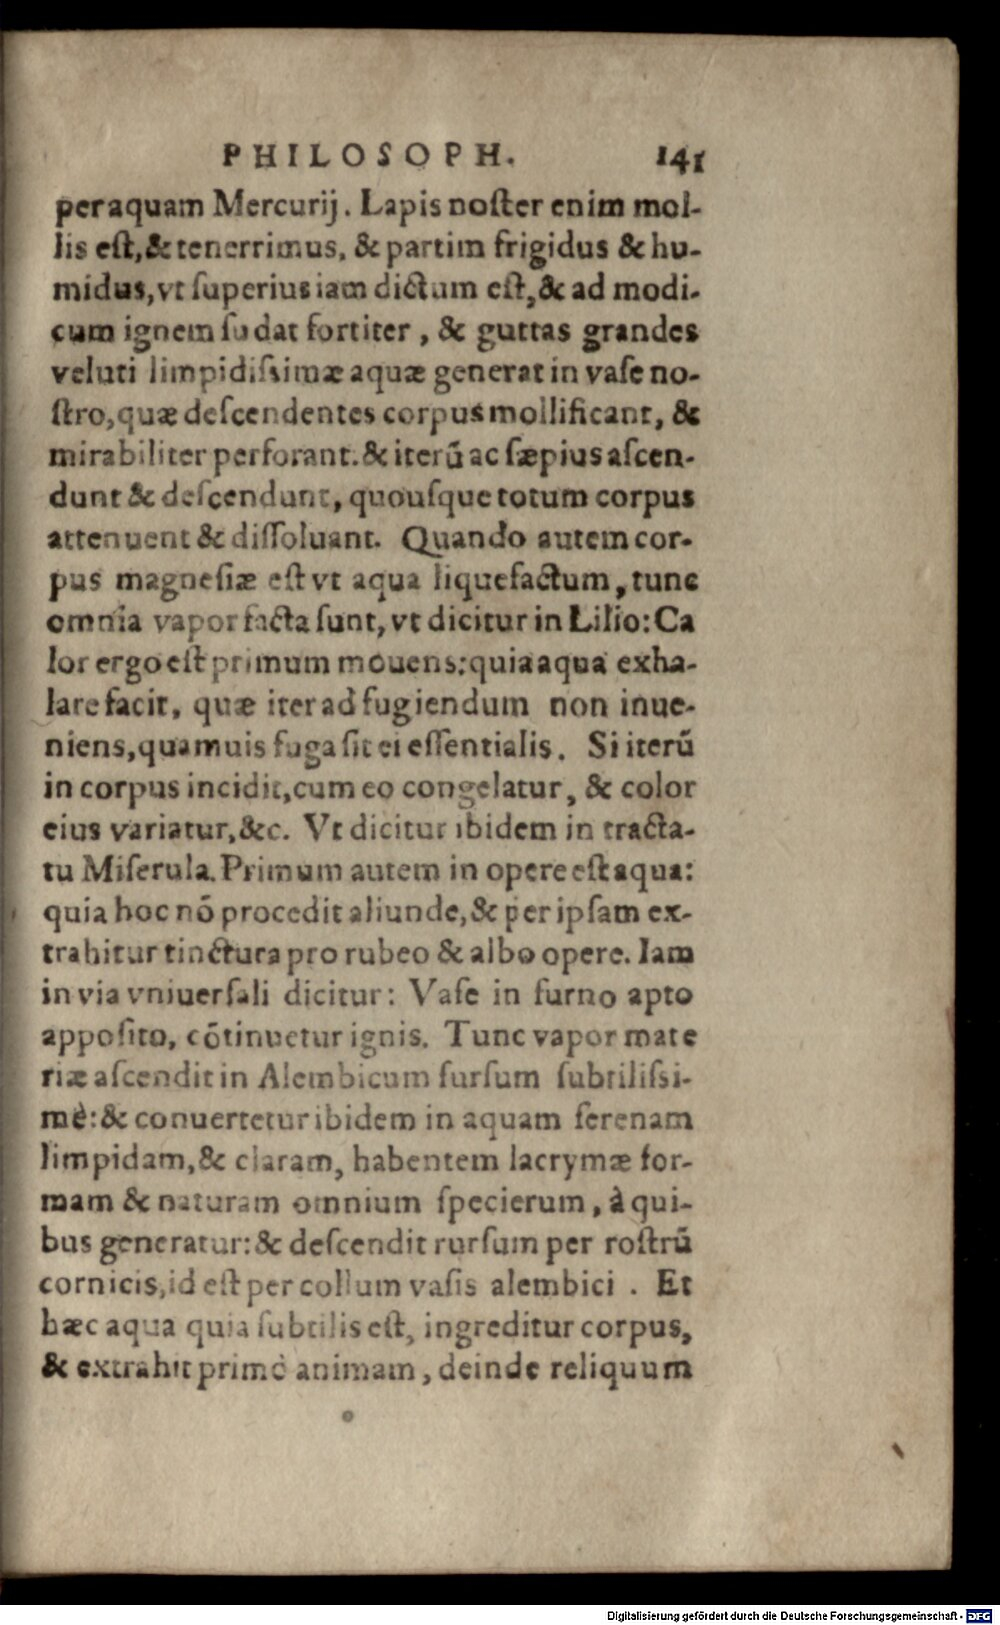 PHILOSOPH. 141
per aquam Mercurij. Lapis noſter enim mol-
lis eſt, & tenerrimus, & partim frigidus & hu-
midus, vt ſuperius iam dictum eſt, & ad modi-
cum ignem ſudat fortiter, & guttas grandes
veluti limpidiſsimæ aquæ generat in vaſe no-
ſtro, quæ deſcendentes corpus mollificant, &
mirabiliter perforant. & iterũ ac ſæpius aſcen-
dunt & deſcendunt, quouſque totum corpus
attenuent & diſſoluant. Quando autem cor-
pus magneſiæ eſt vt aqua liquefactum, tunc
omnia vapor facta ſunt, vt dicitur in Lilio: Ca
lor ergo eſt primum mouens: quia aqua exha-
lare facit, quæ iter ad fugiendum non inue-
niens, quamuis fuga ſit ei eſſentialis. Si iterũ
in corpus incidit, cum eo congelatur, & color
eius variatur, &c. Vt dicitur ibidem in tracta-
tu Miſerula. Primum autem in opere eſt aqua:
quia hoc nõ procedit aliunde, & per ipſam ex-
trahitur tinctura pro rubeo & albo opere. Iam
in via vniuerſali dicitur: Vaſe in furno apto
appoſito, cõtinuetur ignis. Tunc vapor mate
riæ aſcendit in Alembicum ſurſum ſubtiliſsi-
mè: & conuertetur ibidem in aquam ſerenam
limpidam, & claram, habentem lacrymæ for-
mam & naturam omnium ſpecierum, à qui-
bus generatur: & deſcendit rurſum per roſtrũ
cornicis, id eſt per collum vaſis alembici. Et
hæc aqua quia ſubtilis eſt, ingreditur corpus,
& extrahit primè animam, deinde reliquum
Digitalisierung gefördert durch die Deutsche Forschungsgemeinschaft - DFG